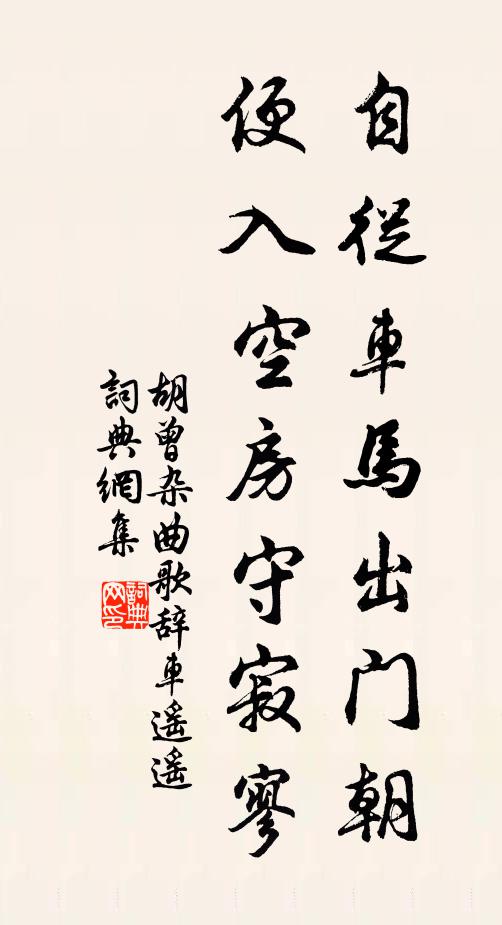 自從車馬出門朝
便入空房守寂寥
胡曾杂曲歌辞車遥遥
詞典網集
詞典网印